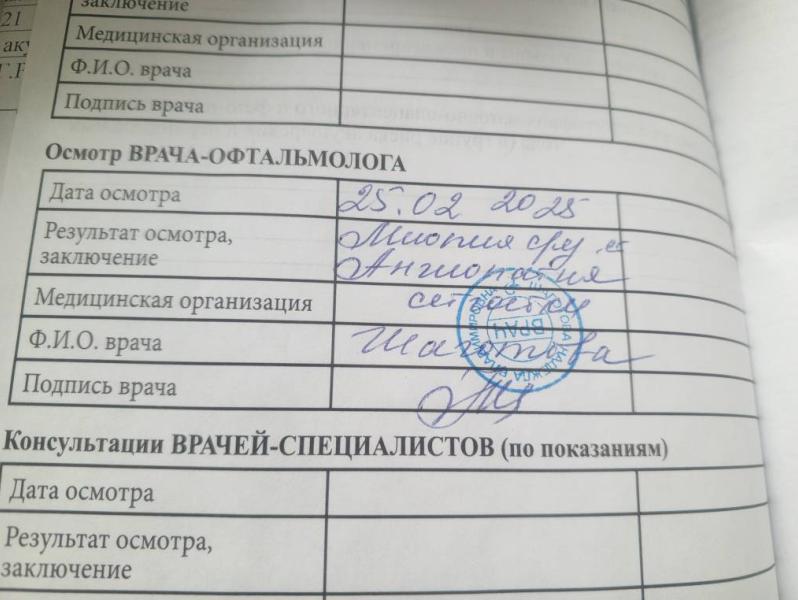 заключение
21
Медицинская организация
аку
Ф.И.О. врача
Подпись врача
Осмотр ВРАЧА-ОФТАЛЬМОЛОГА
Дата осмотра 25.02 2025
Результат осмотра, Миопия ср
заключение Ангиопатия
Медицинская организация сетчатки
Ф.И.О. врача
Подпись врача
ВРАЧ
НАДЕЖДА
Консультации ВРАЧЕЙ-СПЕЦИАЛИСТОВ (по показаниям)
Дата осмотра
Результат осмотра,
заключение